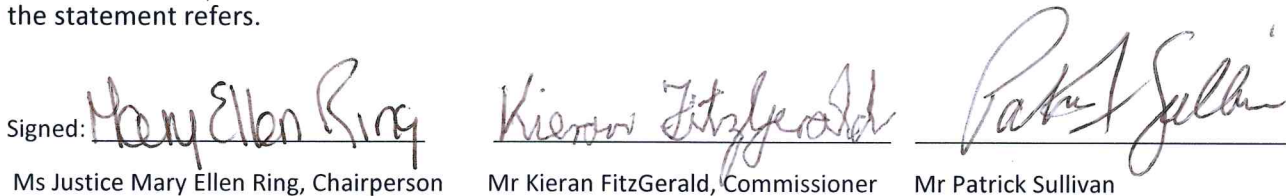 the statement refers.
Signed: Mary Ellen Ring Kieran FitzGerald Patrick Sullivan
Ms Justice Mary Ellen Ring, Chairperson Mr Kieran FitzGerald, Commissioner Mr Patrick Sullivan